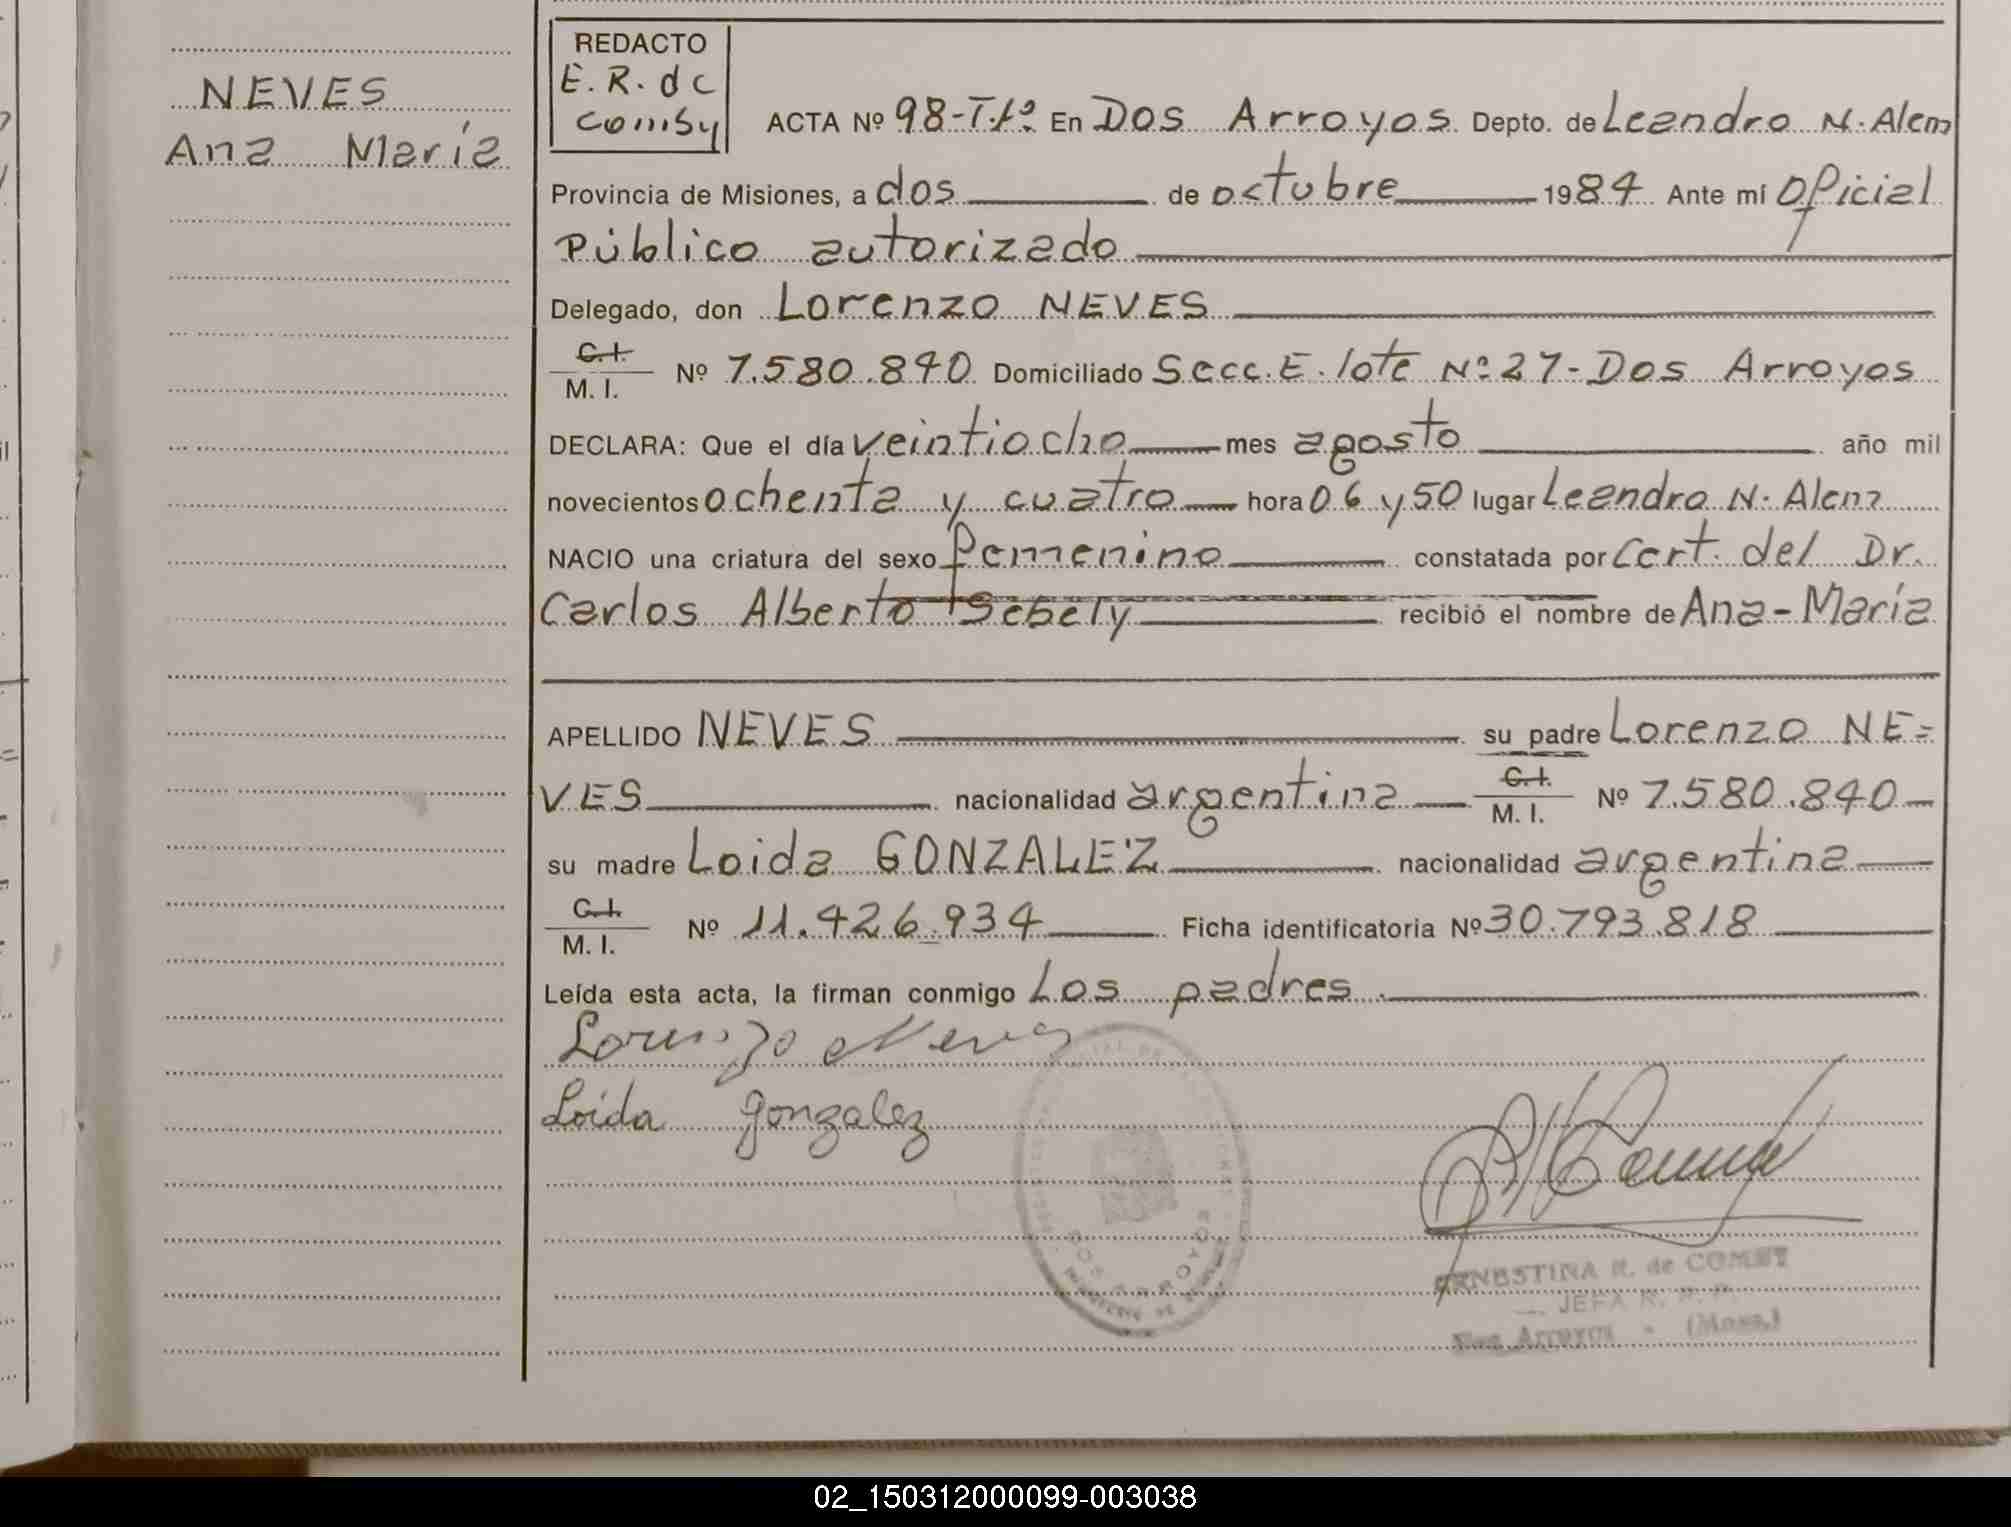 NEVES
Ana María
REDACTO
E. R. de
ACTA Nº 98-T.1º En Dos Arroyos Depto. de Leandro N. Alem
Provincia de Misiones, a dos de octubre 1984 Ante mí Oficial
Público autorizado
Delegado, don Lorenzo NEVES
C.I.
M. I. Nº 7.580.840 Domiciliado Secc. E. lote Nº 27 - Dos Arroyos
DECLARA: Que el día veintiocho mes agosto año mil
novecientos ochenta y cuatro hora 06 y 50 lugar Leandro N. Alem
NACIO una criatura del sexo femenino constatada por Cert. del Dr.
Carlos Alberto Sebely recibió el nombre de Ana-María
APELLIDO NEVES su padre Lorenzo NE=
VES nacionalidad argentina C.I. M. I. Nº 7.580.840
su madre Loida GONZALEZ nacionalidad argentina
C.I.
M. I. Nº 11.426.934 Ficha identificatoria Nº 30.793.818
Leída esta acta, la firman conmigo Los padres.
Lorenzo Neves
Loida Gonzalez
DOS ARROYOS
ERNESTINA R. de COMBY
JEFA R. P.
Dos Arroyos - (Mnes.)
02_150312000099-003038